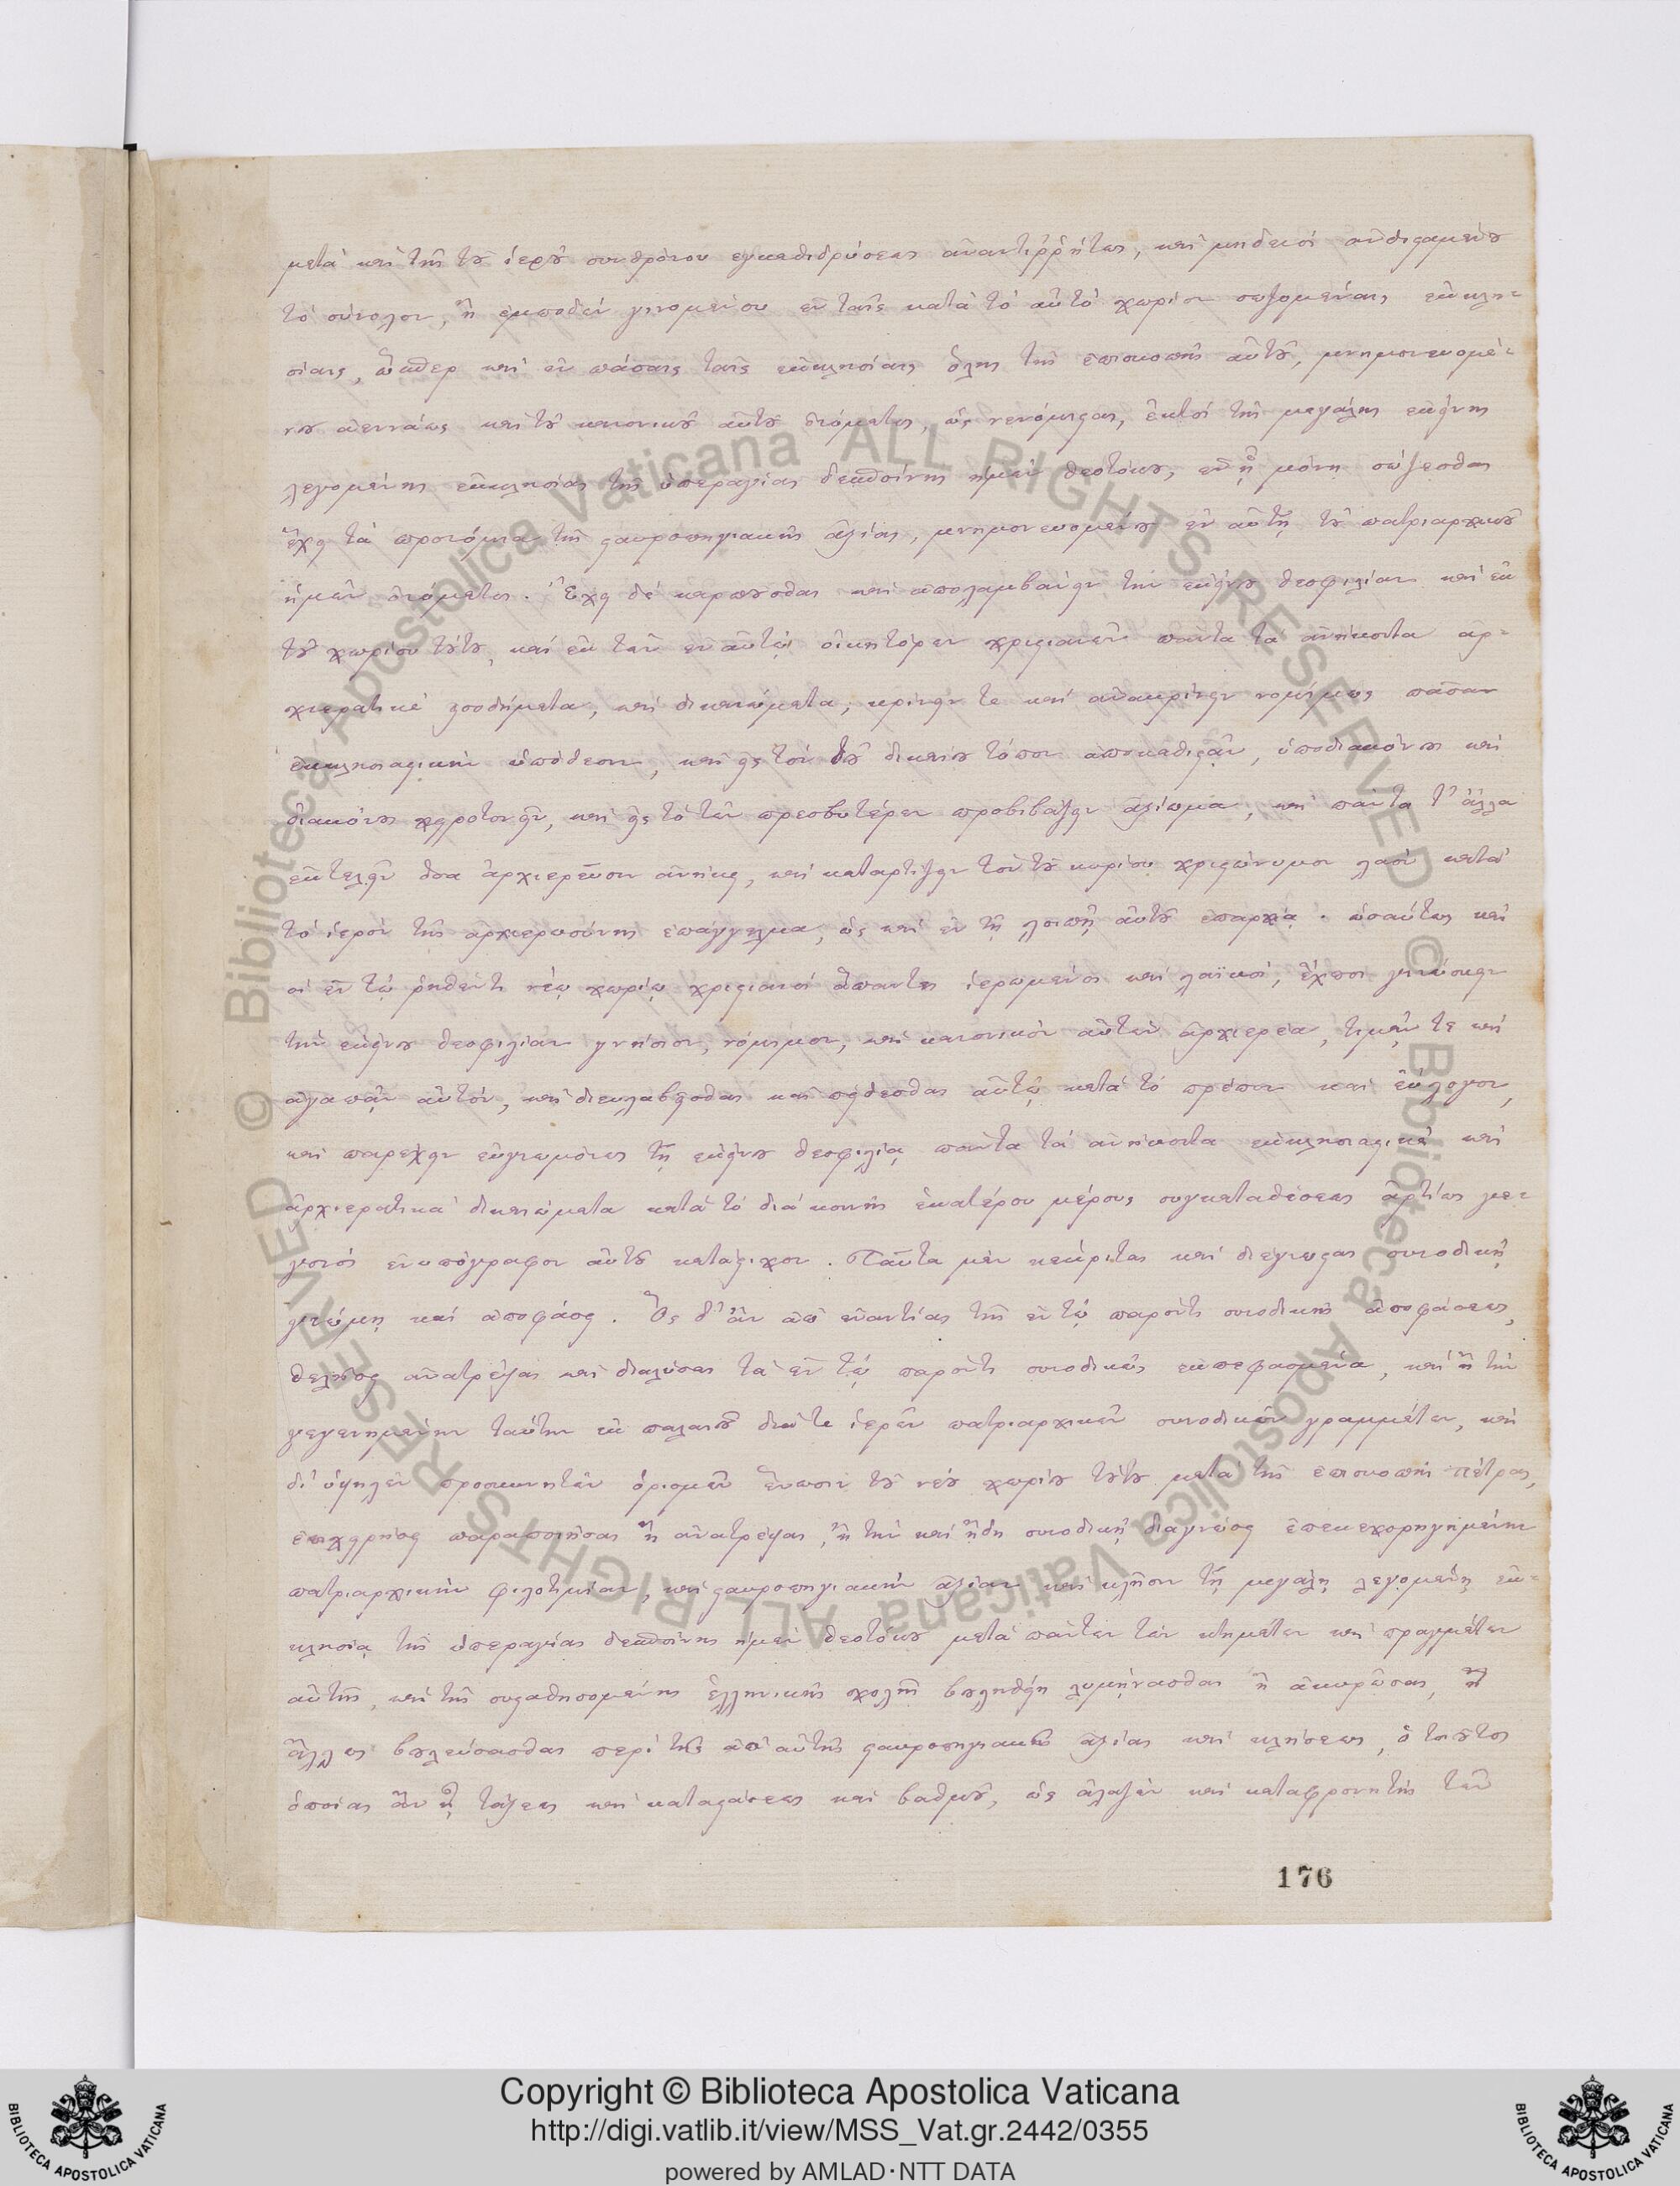 μετὰ καὶ τῆς τοῦ ἱεροῦ συνθρόνου ἐγκαθιδρύσεως ἀναντιῤῥήτως, καὶ μηδενὸς ἀνθισταμένου
τὸ σύνολον, ἢ ἐμποδὼν γινομένου ἐν ταῖς κατὰ τὸ αὐτὸ χωρίον σωζομέναις ἐκκλη-
σίαις, ὥσπερ καὶ ἐν πάσαις ταῖς ἐκκλησίαις ὅλης τῆς ἐπισκοπῆς αὐτοῦ, μνημονευομέ-
νου ἀεννάως καὶ τοῦ κανονικοῦ αὐτοῦ ὀνόματος, ὡς νενόμισται, ἐκτὸς τῆς μεγάλης ἐκείνης
λεγομένης ἐκκλησίας τῆς ὑπεραγίας δεσποίνης ἡμῶν θεοτόκου, ἐν ᾗ μόνῃ σώζεσθαι
ἔχει τὰ προνόμια τῆς σταυροπηγιακῆς ἀξίας, μνημονευομένου ἐν αὐτῇ τοῦ πατριαρχικοῦ
ἡμῶν ὀνόματος. Ἔχει δὲ καρποῦσθαι καὶ ἀπολαμβάνειν τὴν ἐκείνου θεοφιλίαν καὶ ἐκ
τοῦ χωρίου τούτου, καὶ ἐκ τῶν ἐν αὐτῷ οἰκητόρων χριστιανῶν πάντα τὰ ἀνήκοντα ἀρ-
χιερατικὰ εἰσοδήματα, καὶ δικαιώματα, κρίνειν τε καὶ ἀνακρίνειν νομίμως πᾶσαν
ἐκκλησιαστικὴν ὑπόθεσιν, καὶ εἰς τὸν τοῦ δικαίου τόπον ἀποκαθιστᾷν, ὑποδιακόνους καὶ
διακόνους χειροτονεῖν, καὶ εἰς τὸ τῶν πρεσβυτέρων προβιβάζειν ἀξίωμα, καὶ πάντα τ' ἄλλα
ἐκτελεῖν ὅσα ἀρχιερεῦσιν ἀνήκει, καὶ καταρτίζειν τὸν τοῦ κυρίου χριστώνυμον λαὸν κατὰ
τὸ ἱερὸν τῆς ἀρχιερωσύνης ἐπάγγελμα, ὡς καὶ ἐν τῇ λοιπῇ αὐτοῦ ἐπαρχίᾳ. ὡσαύτως καὶ
οἱ ἐν τῷ ῥηθέντι νέῳ χωρίῳ χριστιανοὶ ἅπαντες ἱερωμένοι καὶ λαϊκοί, ἔχουσι γινώσκειν
τὴν ἐκείνου θεοφιλίαν γνήσιον, νόμιμον, καὶ κανονικὸν αὐτῶν ἀρχιερέα, τιμᾷν τε καὶ
ἀγαπᾷν αὐτόν, καὶ διευλαβεῖσθαι καὶ πείθεσθαι αὐτῷ κατὰ τὸ πρέπον καὶ εὔλογον,
καὶ παρέχειν εὐγνωμόνως τῇ ἐκείνου θεοφιλίᾳ πάντα τὰ ἀνήκοντα ἐκκλησιαστικὰ καὶ
ἀρχιερατικὰ δικαιώματα κατὰ τὸ διὰ κοινῆς ἑκατέρου μέρους συγκαταθέσεως ἀρτίως γε-
γονὸς ἐνυπόγραφον αὐτοῦ κατάστιχον. Ταῦτα μὲν κέκριται καὶ διέγνωσται συνοδικῇ
γνώμῃ καὶ ἀποφάσει. Ὃς δ' ἂν ἀπ' ἐναντίας τῆς ἐν τῷ παρόντι συνοδικῆς ἀποφάσεως,
θελήσῃ ἀνατρέψαι καὶ διαλύσαι τὰ ἐν τῷ παρόντι συνοδικῶς ἐκπεφασμένα, καὶ ἢ τὴν
γεγενημένην ταύτην ἐκ παλαιοῦ διά τε ἱερῶν πατριαρχικῶν συνοδικῶν γραμμάτων, καὶ
δι' ὑψηλῶν προσκυνητῶν ὁρισμῶν ἕνωσιν τοῦ νέου χωρίου τούτου μετὰ τῆς ἐπισκοπῆς Πέτρας,
ἐπιχειρήσῃ παραποιῆσαι ἢ ἀνατρέψαι, ἢ τὴν καὶ ἤδη συνοδικῇ διαγνώσει ἐπικεχορηγημένην
πατριαρχικὴν φιλοτιμίαν, καὶ σταυροπηγιακὴν ἀξίαν καὶ κλῆσιν τῇ μεγάλῃ λεγομένῃ ἐκ-
κλησίᾳ τῆς ὑπεραγίας δεσποίνης ἡμῶν θεοτόκου μετὰ πάντων τῶν κτημάτων καὶ πραγμάτων
αὐτῆς, καὶ τῆς συσταθησομένης ἑλληνικῆς σχολῆς βουληθείη λυμήνασθαι ἢ ἀκυρῶσαι, ἢ
ἄλλως βουλεύσασθαι περὶ τῆς ἀπ' αὐτῆς σταυροπηγιακῆς ἀξίας καὶ κλήσεως, ὁ τοιοῦτος
ὁποίας ἂν ᾖ τάξεως καὶ καταστάσεως καὶ βαθμοῦ, ὡς ἀλαζὼν καὶ καταφρονητὴς τῶν
176
Copyright © Biblioteca Apostolica Vaticana
http://digi.vatlib.it/view/MSS_Vat.gr.2442/0355
powered by AMLAD·NTT DATA
BIBLIOTECA APOSTOLICA VATICANA
BIBLIOTECA APOSTOLICA VATICANA
© Biblioteca Apostolica Vaticana ALL RIGHTS RESERVED
© Biblioteca Apostolica Vaticana ALL RIGHTS RESERVED